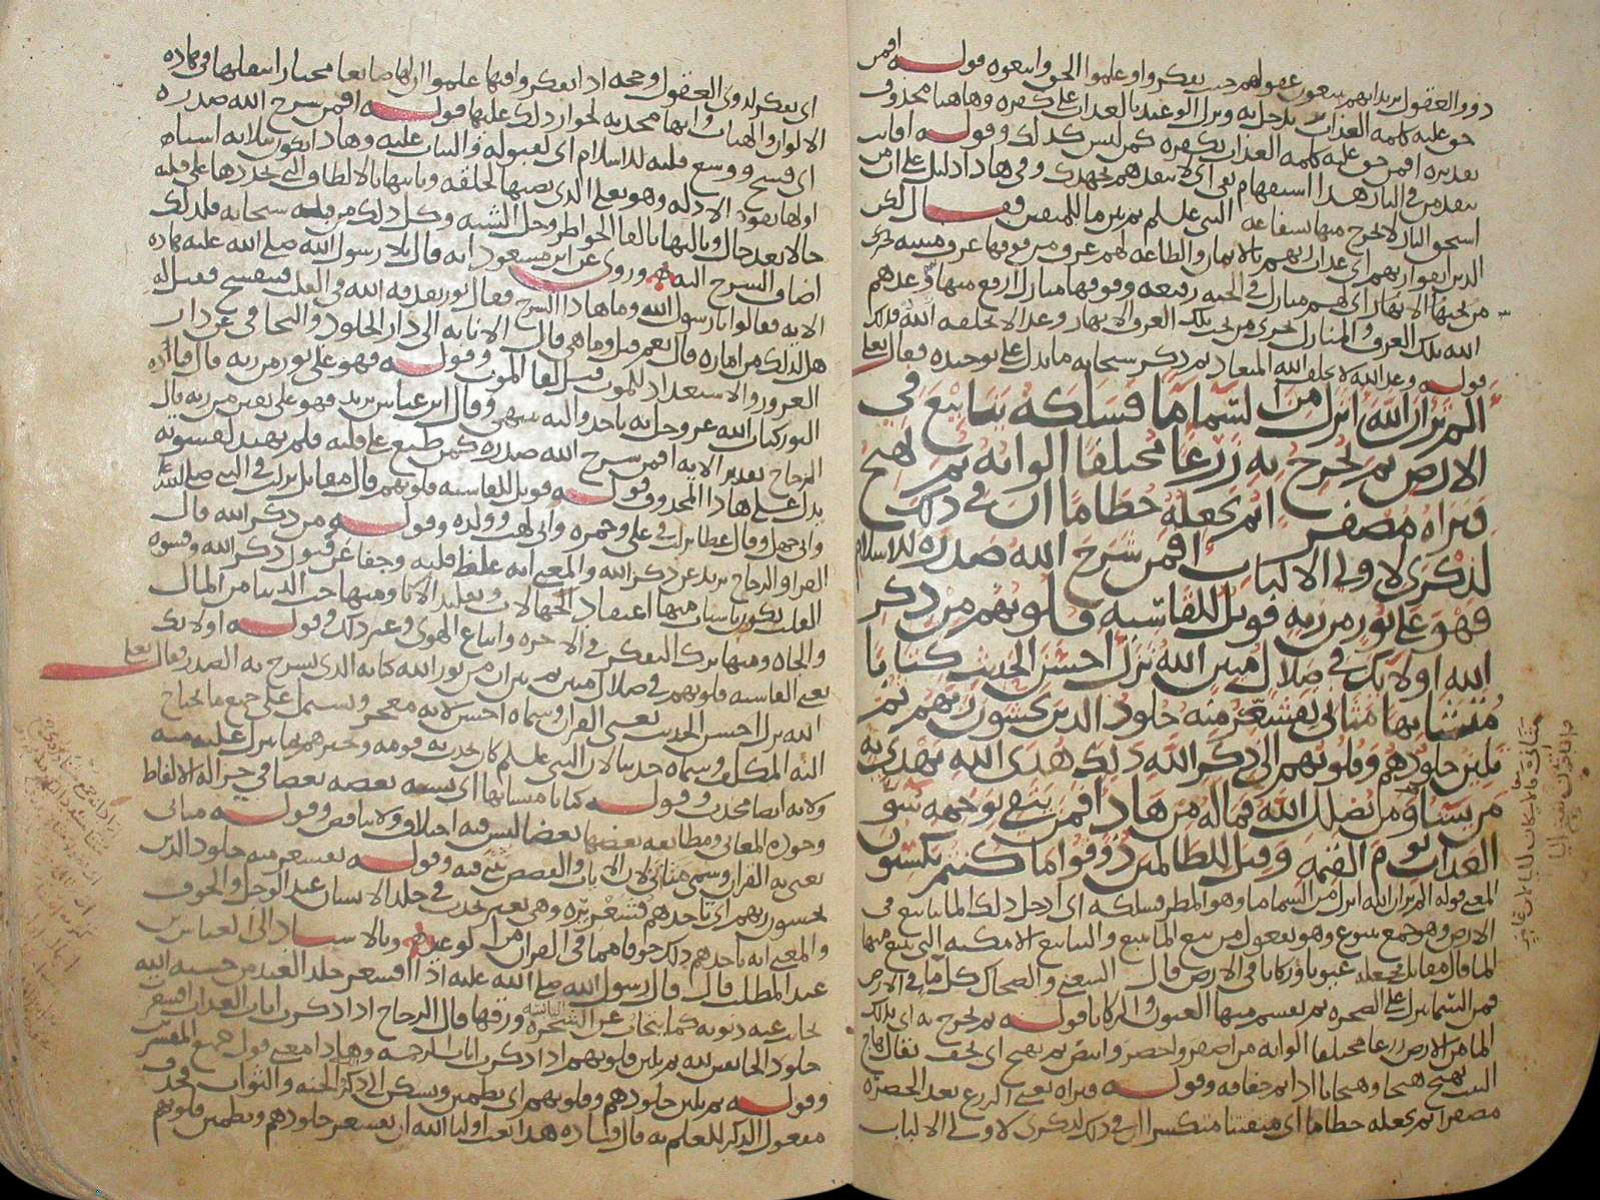 ذوو العقول يريد انهم ينتفعون بعقولهم حيث تفكروا وعلموا الحق واتبعوه قوله افمن
حق عليه كلمة العذاب
تقديره افمن حق عليه كلمة العذاب بكفره كمن ليس كذلك وقوله افانت
تنقذ من في النار هذا استفهام نفي اي لا تنقذهم بجهدك وفي هاذا دليل على ان من
استحق النار لا يخرج منها بشفاعة النبي عليلم ثم بين ما للمتقين فقال لكن
الذين اتقوا ربهم اي عذاب ربهم بالايمان والطاعه لهم غرف من فوقها غرف مبنيه تجري
من تحتها الانهار اي لهم منازل في الجنه رفيعه وفوقها منازل ارفع منها وعدهم
الله تلك الغرف والمنازل تجري من تحت تلك الغرف الانهار وعدا لا يخلفه الله فذلك
قوله وعد الله لا يخلف الله الميعاد ثم ذكر سبحانه ما يدل على توحيده فقال تعلى
الم تر ان الله انزل من السما ما فسلكه ينابيع في
الارض ثم يخرج به زرعا مختلفا الوانه ثم يهيج
فتراه مصفرا ثم يجعله حطاما ان في ذلك
لذكرى لاولي الالباب افمن شرح الله صدره للاسلام
فهو على نور من ربه فويل للقاسيه قلوبهم من ذكر
الله اولائك في ضلال مبين الله نزل احسن الحديث كتابا
متشابها مثاني تقشعر منه جلود الذين يخشون ربهم ثم
تلين جلودهم وقلوبهم الى ذكر الله ذلك هدى الله يهدي به
من يشا ومن يضلل الله فما له من هاد افمن يتقي بوجهه سو
العذاب يوم القيمه وقيل للظالمين ذوقوا ما كنتم تكسبون
المعنى قوله الم تر ان الله انزل من السما ما وهو المطر فسلكه اي ادخل ذلك الما ينابيع في
الارض وهو جمع ينبوع وهو يفعول من نبع الما ينبع والينابيع الامكنه التي ينبع منها
الما قال مقاتل فجعله عيونا وركايا في الارض قال الشعبي والضحاك كل ما في الارض
فمن السما نزل على الصخره ثم يقسم منها العيون والركايا قوله ثم يخرج به اي بذلك
الما من الارض زرعا مختلفا الوانه من اصفر واخضر وابيض ثم يهيج اي يجف يقال هاج
النبت يهيج هيجا وهيجانا اذا تم جفافه وقوله فتراه يعني الزرع بعد الخضره
مصفرا ثم يجعله حطاما اي متفتتا متكسرا ان في ذلك لذكرى لاولي الالباب
اي تفكر لذوي العقول وحجه اذا تفكروا فيها علموا ان لها صانعا مختارا
الالوان والهيات وانها محدثه لجواز ذلك عليها قوله افمن شرح الله صدره
اي فسح ووسع قلبه للاسلام اي لقبوله والثبات عليه وهاذا يكون بثلاثه اسباب
اولها بقوه الادله وهو تعلى الذي نصبها لخلقه وثانيها بالالطاف التي تجدد ها على قلبه
حالا بعد حال وثالثها بالقا الخواطر وحل الشبه وكل ذلك من قبله سبحانه فلذلك
اضاف الشرح اليه وروي عن ابن مسعود انه قال تلا رسول الله صلى الله عليه هاذه
الايه فقالوا يا رسول الله وما هاذا الشرح فقال نور يقذفه الله في القلب فينفسح فقيل له
هل لذلك من اماره قال نعم قيل وما هي قال الانابه الى دار الخلود والتجافي عن دار
الغرور والاستعداد للموت قبل لقا الموت وقوله فهو على نور من ربه قال قتاده
النور كتاب الله عز وجل به ناخذ واليه ننتهي وقال ابن عباس يريد فهو على يقين من ربه قال
الزجاج تقدير الايه افمن شرح الله صدره كمن طبع على قلبه فلم يهتد لقسوته
يدل على هاذا المحذوف قوله فويل للقاسيه قلوبهم قال مقاتل نزلت في النبي صلى الله عليه
وابي جهل وقال عطا نزلت في علي وحمزه وابي لهب وولده وقوله من ذكر الله قال
الفرا والزجاج يريد عن ذكر الله والمعنى انه غلظ قلبه وجفا عن قبول ذكر الله وقسوه
القلب تكون باسباب منها اعتقاد الجهالات وتقليد الابا ومنها حب الدنيا من المال
والجاه ومنها ترك التفكر في الاخره واتباع الهوى وغير ذلك وقوله اولائك
يعني القاسيه قلوبهم في ضلال مبين ثم بين ان من نور الله كتابه الذي يشرح به الصدر فقال تعلى
الله نزل احسن الحديث يعني القران وسماه احسن لانه معجز ويشتمل على جميع ما يحتاج
اليه المكلف وسماه حديثا لان النبي عليلم كان يحدث به قومه ويخبرهم بما ينزل عليه منه
ولانه ايضا محدث وقوله كتابا متشابها اي يشبه بعضه بعضا في جزاله الالفاظ
وجوده المعاني ومطابقه بعضها بعضا ليس فيه اختلاف ولا تناقض وقوله مثاني
يعني به القران وسمي مثاني لان الانباء والقصص تثنى فيه وقوله تقشعر منه جلود الذين
يخشون ربهم اي تاخذهم قشعريره وهي تغير يحدث في جلد الانسان عند الوجل والخوف
والمعنى انه ياخذهم ذلك خوفا مما في القران من الوعيد وبالاسناد الى العباس بن
عبد المطلب قال قال رسول الله صلى الله عليه اذا اقشعر جلد العبد من خشية الله
تحاتت عنه ذنوبه كما يتحات عن الشجره اليابسه ورقها قال الزجاج اذا ذكرت ايات العذاب اقشعرت
جلود الخائفين لله ثم تلين قلوبهم اذا ذكرت ايات الرحمه وهاذا معنى قول جميع المفسرين
وقوله ثم تلين جلودهم وقلوبهم اي تطمين وتسكن الى ذكر الجنه والثواب فحذف
مفعول الذكر للعلم به قال قتاده هذا نعت اوليا الله ان تقشعر جلودهم وتطمين قلوبهم